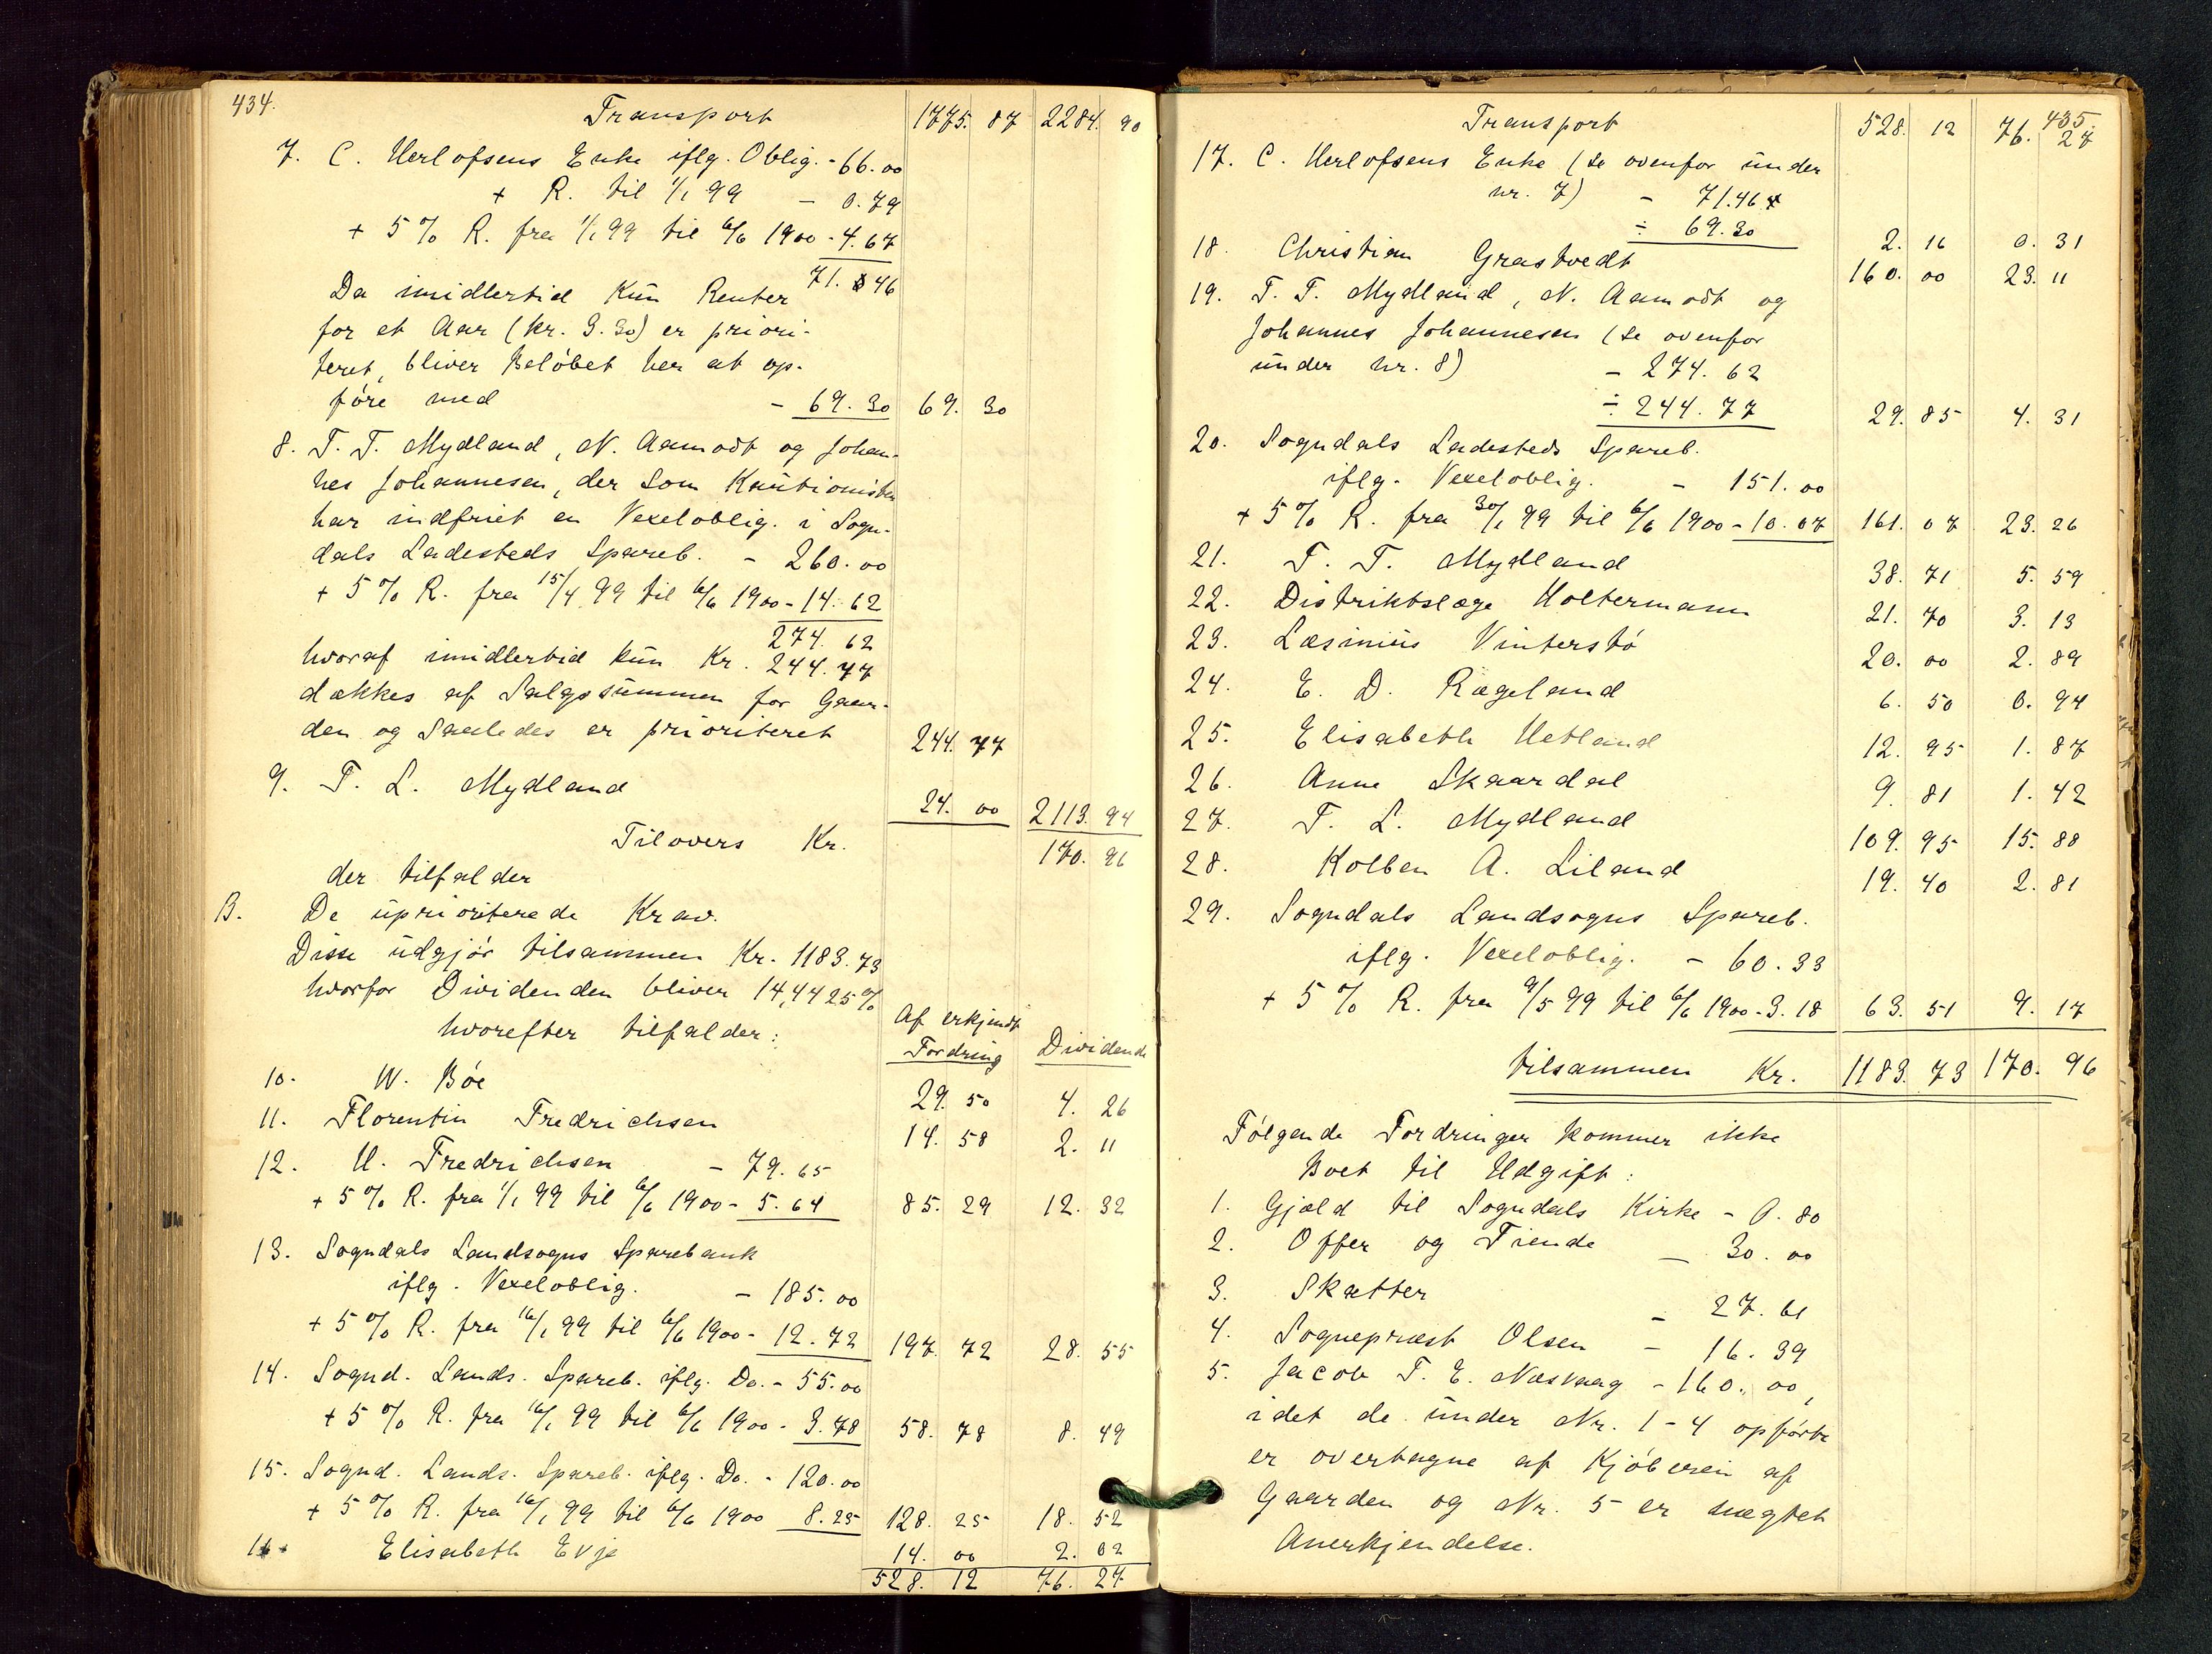 434.
Transport 1775. 87 2284. 90
7. C. Herlofsens Enke iflg. Oblig. - 66.00
+ R. til 1/1 99 - 0.79
+ 5 % R. fra 1/1 99 til 6/6 1900 - 4.67
71. 46
Da imidlertid kun Renter
for et Aar (kr. 3.30) er priori-
teret, bliver Beløbet her at op-
føre med - 69.30 69. 30
8. T. T. Mydland, N. Aamodt og Johan-
nes Johannesen, der som Kautionister
har indfriet en Vexeloblig. i Sogn-
dals Ladesteds Spareb. - 260.00
+ 5 % R. fra 15/4 99 til 6/6 1900 - 14.62
274. 62
hvoraf imidlertid kun Kr. 244.77
dækkes af Salgssummen for Gaar-
den og saaledes er prioriteret 244. 77
9. T. L. Mydland 24. 00 2113. 94
Tilovers Kr. 170. 96
der tilfalder
B. De uprioriterede Krav.
Disse udgjør tilsammen Kr. 1183.73
hvorfor Dividenden bliver 14,4425 %
hvorefter tilfalder: Af erkjendt Fordring Dividende
10. W. Bøe 29. 50 4. 26
11. Florentin Fredrichsen 14. 58 2. 11
12. U. Fredrichsen - 79.65
+ 5 % R. fra 1/1 99 til 6/6 1900 - 5.64 85. 29 12. 32
13. Sogndals Landsogns Sparebank
iflg. Vexeloblig. - 185.00
+ 5 % R. fra 16/1 99 til 6/6 1900 - 12.72 197. 72 28. 55
14. Sognd. Lands. Spareb. iflg. Do. - 55.00
+ 5 % R. fra 16/1 99 til 6/6 1900 - 3.78 58. 78 8. 49
15. Sognd. Lands. Spareb. iflg. Do. - 120.00
+ 5 % R. fra 16/1 99 til 6/6 1900 8.25 128. 25 18. 52
16. Elisabeth Evje 14. 00 2. 02
528. 12 76. 27
435.
Transport 528. 12 76. 27
17. C. Herlofsens Enke (se ovenfor under
nr. 7) - 71.46
÷ 69.30 2. 16 0. 31
18. Christian Grastvedt 160. 00 23. 11
19. T. T. Mydland, N. Aamodt og
Johannes Johannesen (se ovenfor
under nr. 8) - 274.62
÷ 244.77 29. 85 4. 31
20. Sogndals Ladesteds Spareb.
iflg. Vexeloblig. - 151.00
+ 5 % R. fra 30/1 99 til 6/6 1900 - 10.07 161. 07 23. 26
21. T. T. Mydland 38. 71 5. 59
22. Distriktslæge Holtermann 21. 70 3. 13
23. Lasinius Vinterstø 20. 00 2. 89
24. E. D. Rægeland 6. 50 0. 94
25. Elisabeth Hetland 12. 95 1. 87
26. Anne Skaardal 9. 81 1. 42
27. T. L. Mydland 109. 95 15. 88
28. Kolben A. Liland 19. 40 2. 81
29. Sogndals Landsogns Spareb.
iflg. Vexeloblig. - 60.33
+ 5 % R. fra 9/5 99 til 6/6 1900 - 3.18 63. 51 9. 17
tilsammen Kr. 1183. 73 170. 96
Følgende Fordringer kommer ikke
Boet til Udgift:
1. Gjæld til Sogndals Kirke - 0.80
2. Offer og Tiende - 30.00
3. Skatter - 27.61
4. Sognepræst Olsen - 16.39
5. Jacob T. E. Næsvaag - 160.00,
idet de under Nr. 1-4 opførte
er overtagne af Kjøberen af
Gaarden og Nr. 5 er nægtet
Anerkjendelse.